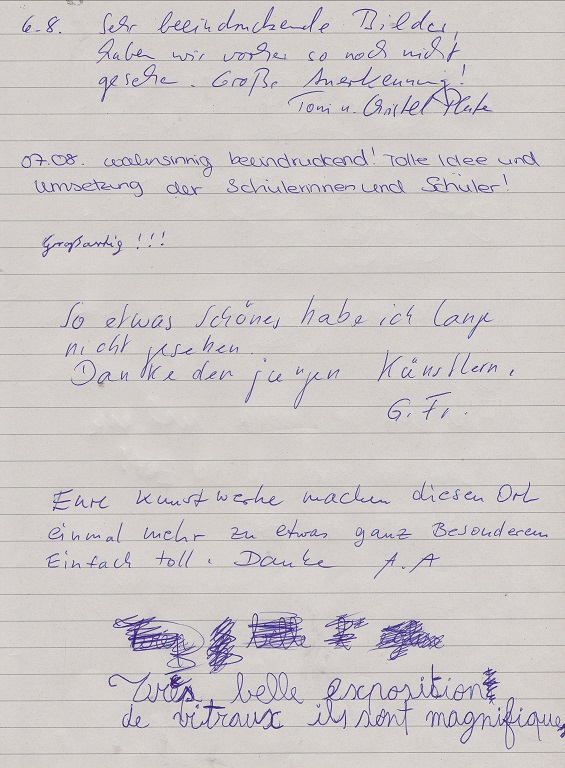 6.8. Sehr beeindruckende Bilder,
haben wir vorher so noch nicht
gesehen. Große Anerkennung!
Toni u. Christel
07.08. wahnsinnig beeindruckend! Tolle Idee und
Umsetzung der Schülerinnen und Schüler!
Großartig !!!
So etwas Schönes habe ich lange
nicht gesehen.
Danke den jungen Künstlern.
G. Fr.
Eure Kunstwerke machen diesen Ort
einmal mehr zu etwas ganz Besonderem
Einfach toll. Danke A. A
Très belle exposition
de vitraux ils sont magnifiques